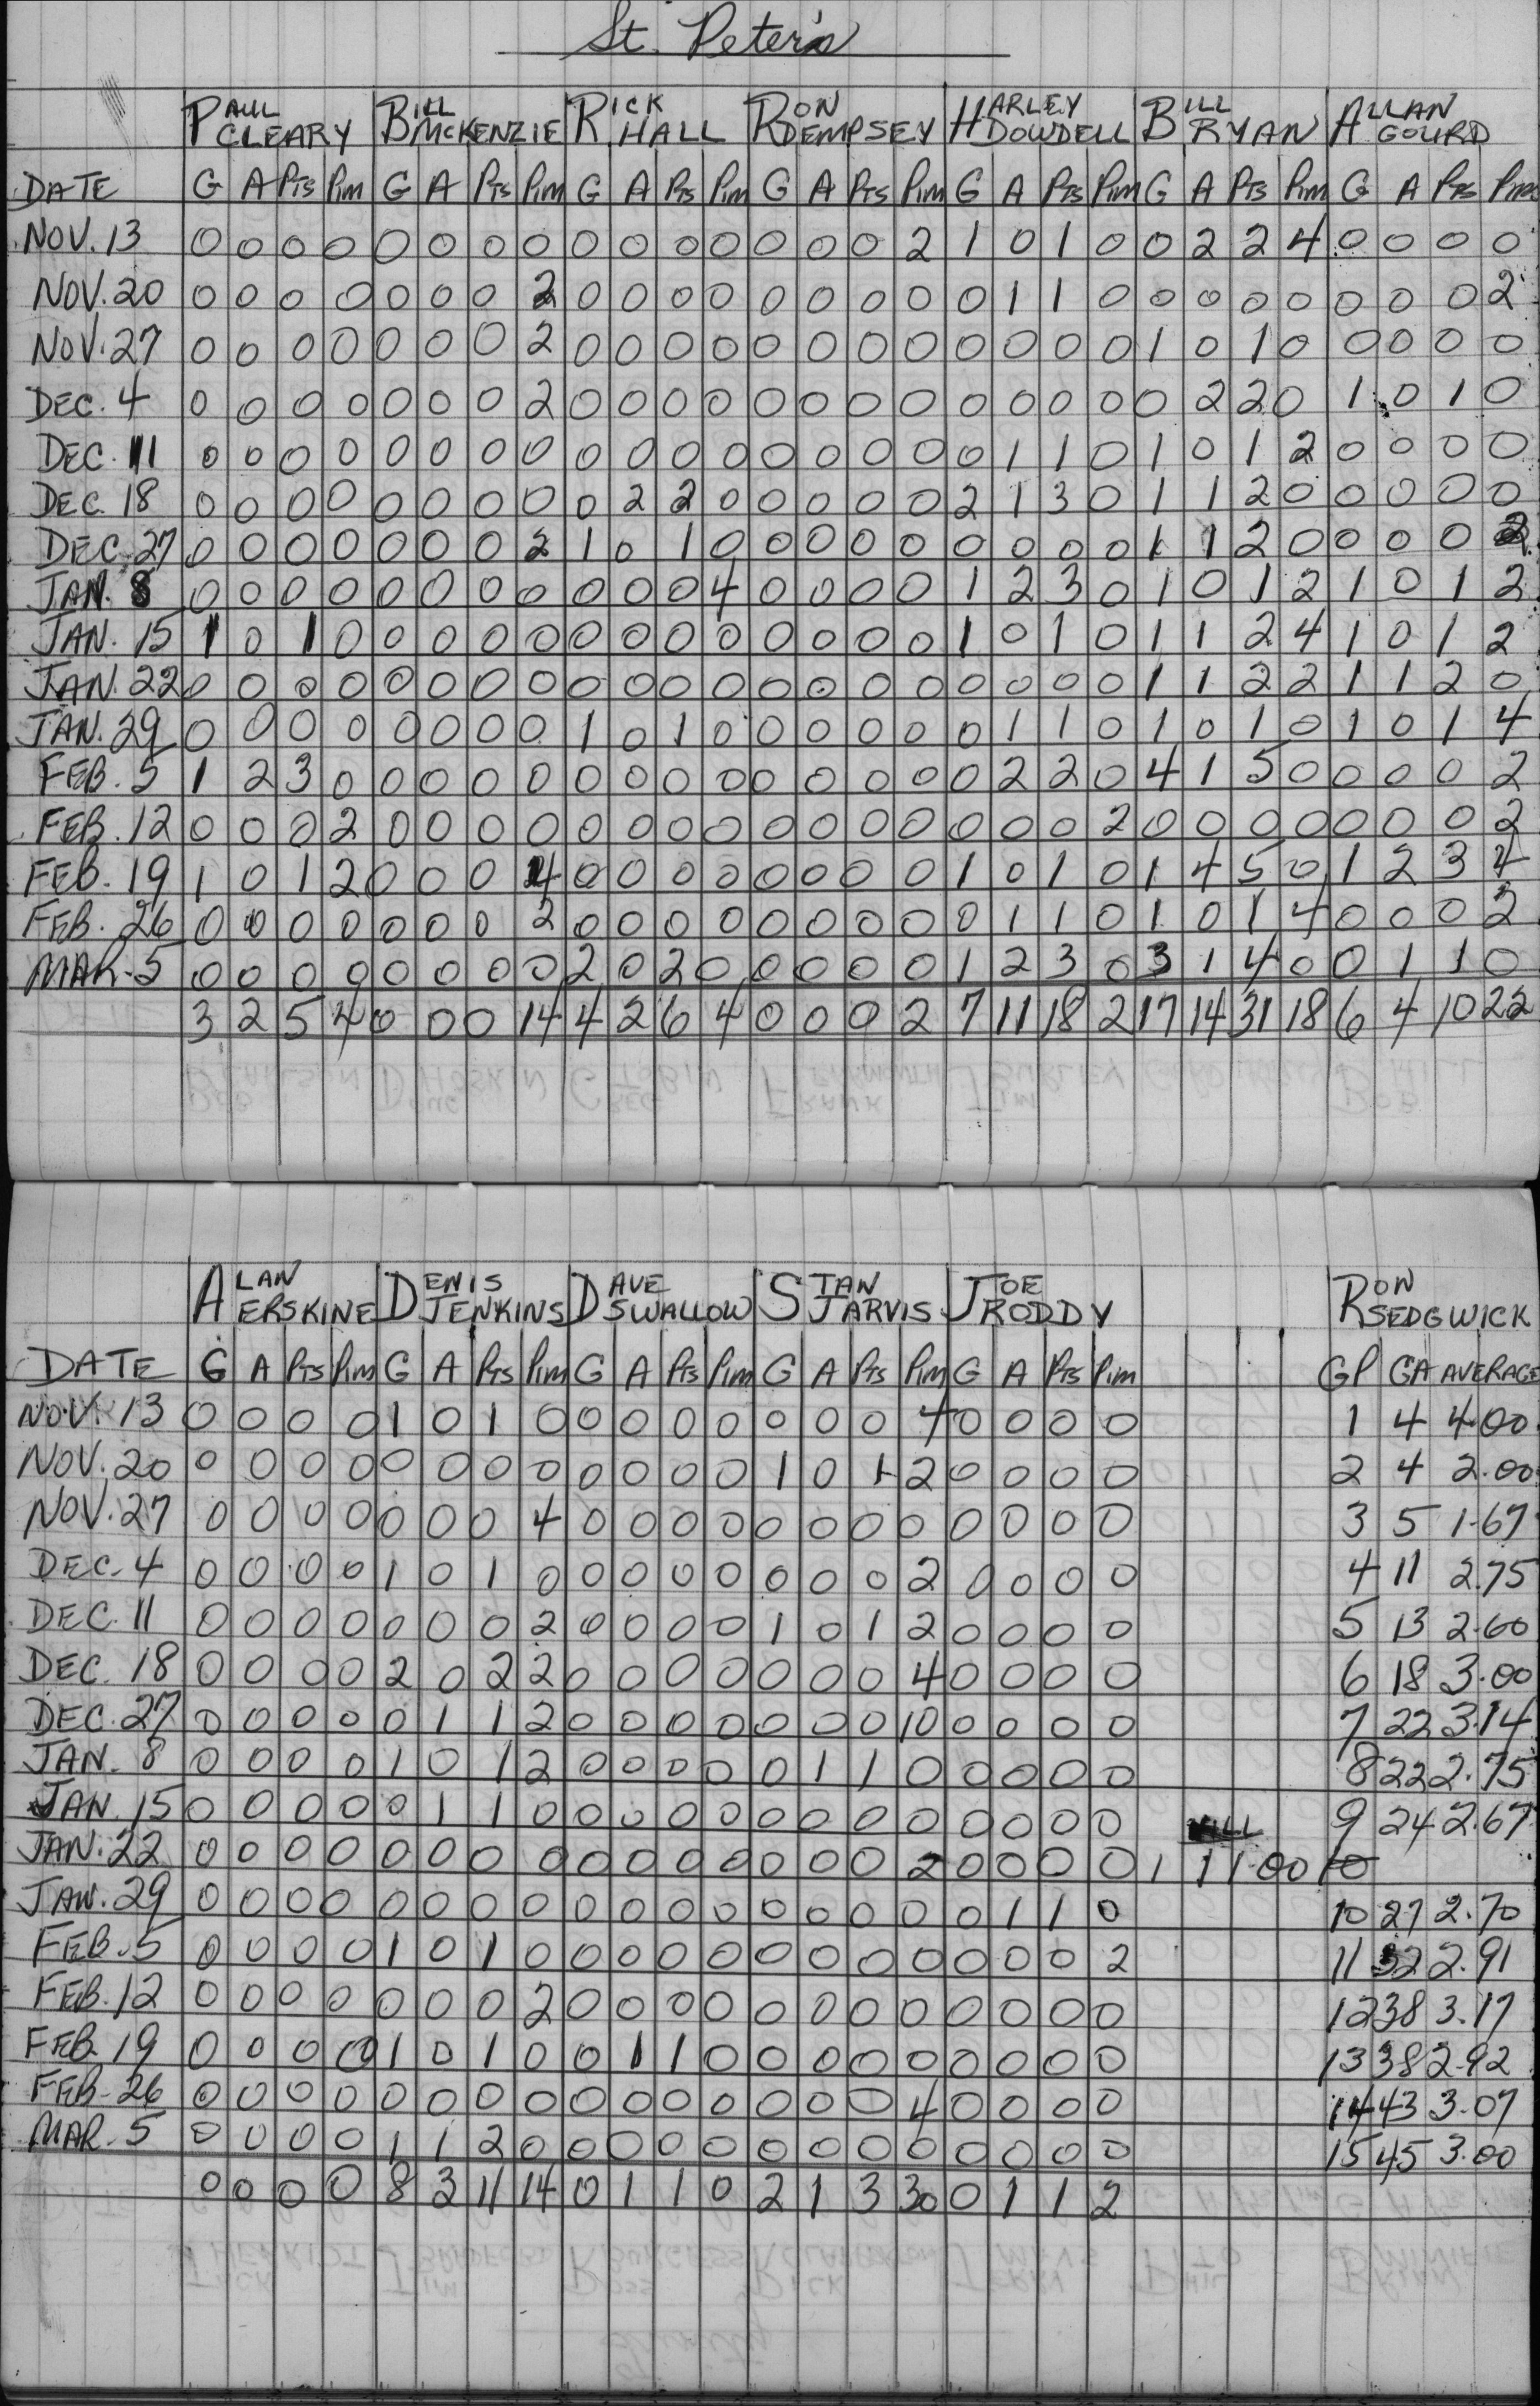 St. Peter's
PAUL CLEARY BILL MCKENZIE RICK HALL RON DEMPSEY HARLEY DOWDELL BILL RYAN ALLAN GOURD
DATE G A Pts Pim G A Pts Pim G A Pts Pim G A Pts Pim G A Pts Pim G A Pts Pim G A Pts Pim
NOV. 13 0 0 0 0 0 0 0 0 0 0 0 0 0 0 0 2 1 0 1 0 0 2 2 4 0 0 0 0
NOV. 20 0 0 0 0 0 0 0 2 0 0 0 0 0 0 0 0 0 1 1 0 0 0 0 0 0 0 0 2
NOV. 27 0 0 0 0 0 0 0 2 0 0 0 0 0 0 0 0 0 0 0 0 1 0 1 0 0 0 0 0
DEC. 4 0 0 0 0 0 0 0 2 0 0 0 0 0 0 0 0 0 0 0 0 0 2 2 0 1 0 1 0
DEC. 11 0 0 0 0 0 0 0 0 0 0 0 0 0 0 0 0 0 1 1 0 1 0 1 2 0 0 0 0
DEC. 18 0 0 0 0 0 0 0 0 0 2 2 0 0 0 0 0 2 1 3 0 1 1 2 0 0 0 0 0
DEC. 27 0 0 0 0 0 0 0 2 1 0 1 0 0 0 0 0 0 0 0 0 1 1 2 0 0 0 0 2
JAN. 8 0 0 0 0 0 0 0 0 0 0 0 4 0 0 0 0 1 2 3 0 1 0 1 2 1 0 1 2
JAN. 15 1 0 1 0 0 0 0 0 0 0 0 0 0 0 0 0 1 0 1 0 1 1 2 4 1 0 1 2
JAN. 22 0 0 0 0 0 0 0 0 0 0 0 0 0 0 0 0 0 0 0 0 1 1 2 2 1 1 2 0
JAN. 29 0 0 0 0 0 0 0 0 1 0 1 0 0 0 0 0 0 1 1 0 1 0 1 0 1 0 1 4
FEB. 5 1 2 3 0 0 0 0 0 0 0 0 0 0 0 0 0 0 2 2 0 4 1 5 0 0 0 0 2
FEB. 12 0 0 0 2 0 0 0 0 0 0 0 0 0 0 0 0 0 0 0 2 0 0 0 0 0 0 0 2
FEB. 19 1 0 1 2 0 0 0 4 0 0 0 0 0 0 0 0 1 0 1 0 1 4 5 0 1 2 3 4
FEB. 26 0 0 0 0 0 0 0 2 0 0 0 0 0 0 0 0 0 1 1 0 1 0 1 4 0 0 0 2
MAR. 5 0 0 0 0 0 0 0 0 2 0 2 0 0 0 0 0 1 2 3 0 3 1 4 0 0 1 1 0
3 2 5 4 0 0 0 14 4 2 6 4 0 0 0 2 7 11 18 2 17 14 31 18 6 4 10 22
ALAN ERSKINE DENIS JENKINS DAVE SWALLOW STAN JARVIS JOE RODDY RON SEDGWICK
DATE G A Pts Pim G A Pts Pim G A Pts Pim G A Pts Pim G A Pts Pim GP GA AVERAGE
NOV. 13 0 0 0 0 1 0 1 0 0 0 0 0 0 0 0 4 0 0 0 0 1 4 4.00
NOV. 20 0 0 0 0 0 0 0 0 0 0 0 0 1 0 1 2 0 0 0 0 2 4 2.00
NOV. 27 0 0 0 0 0 0 0 4 0 0 0 0 0 0 0 0 0 0 0 0 3 5 1.67
DEC. 4 0 0 0 0 1 0 1 0 0 0 0 0 0 0 0 2 0 0 0 0 4 11 2.75
DEC. 11 0 0 0 0 0 0 0 2 0 0 0 0 1 0 1 2 0 0 0 0 5 13 2.60
DEC. 18 0 0 0 0 2 0 2 2 0 0 0 0 0 0 0 4 0 0 0 0 6 18 3.00
DEC. 27 0 0 0 0 0 1 1 2 0 0 0 0 0 0 0 10 0 0 0 0 7 22 3.14
JAN. 8 0 0 0 0 1 0 1 2 0 0 0 0 0 1 1 0 0 0 0 0 8 22 2.75
JAN. 15 0 0 0 0 0 1 1 0 0 0 0 0 0 0 0 0 0 0 0 0 9 24 2.67
JAN. 22 0 0 0 0 0 0 0 0 0 0 0 0 0 0 0 2 0 0 0 0 1 1 1.00 10
JAN. 29 0 0 0 0 0 0 0 0 0 0 0 0 0 0 0 0 0 1 1 0 10 27 2.70
FEB. 5 0 0 0 0 1 0 1 0 0 0 0 0 0 0 0 0 0 0 0 2 11 32 2.91
FEB. 12 0 0 0 0 0 0 0 2 0 0 0 0 0 0 0 0 0 0 0 0 12 38 3.17
FEB. 19 0 0 0 0 1 0 1 0 0 1 1 0 0 0 0 0 0 0 0 0 13 38 2.92
FEB. 26 0 0 0 0 0 0 0 0 0 0 0 0 0 0 0 4 0 0 0 0 14 43 3.07
MAR. 5 0 0 0 0 1 1 2 0 0 0 0 0 0 0 0 0 0 0 0 0 15 45 3.00
0 0 0 0 8 3 11 14 0 1 1 0 2 1 3 30 0 1 1 2